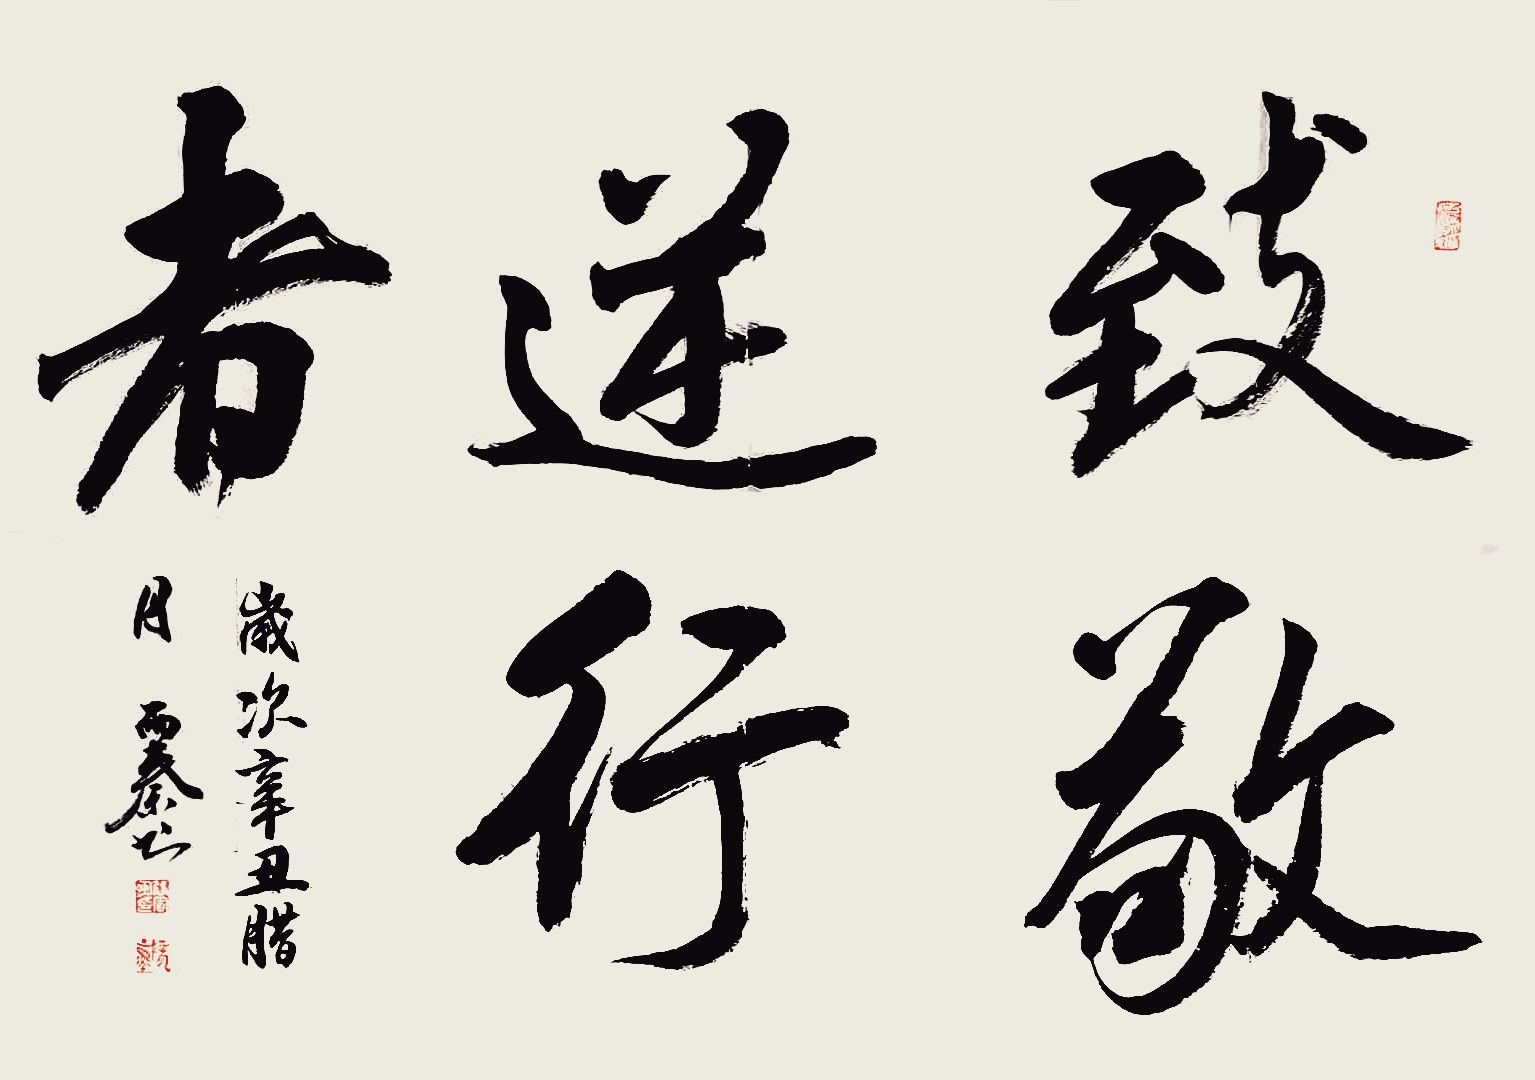 致敬
逆行
者
歲次辛丑腊
月 雨秦书